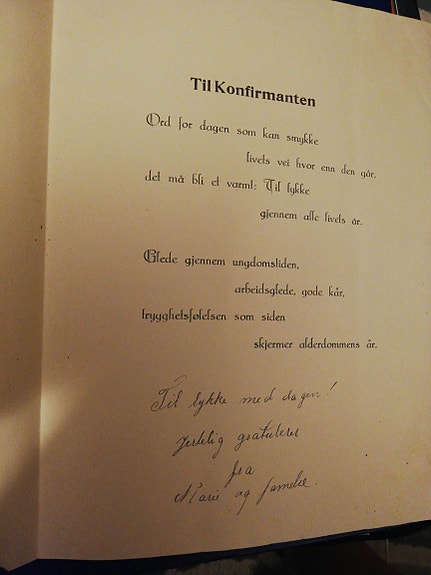 Til Konfirmanten
Ord for dagen som kan smykke
livets vei hvor enn den går,
det må bli et varmt: Til lykke
gjennem alle livets år.
Glede gjennem ungdomstiden,
arbeidsglede, gode kår,
trygghetsfølelsen som siden
skjermer alderdommens år.
Til lykke med dagen!
Hjertelig gratulerer
fra
Marie og familie.